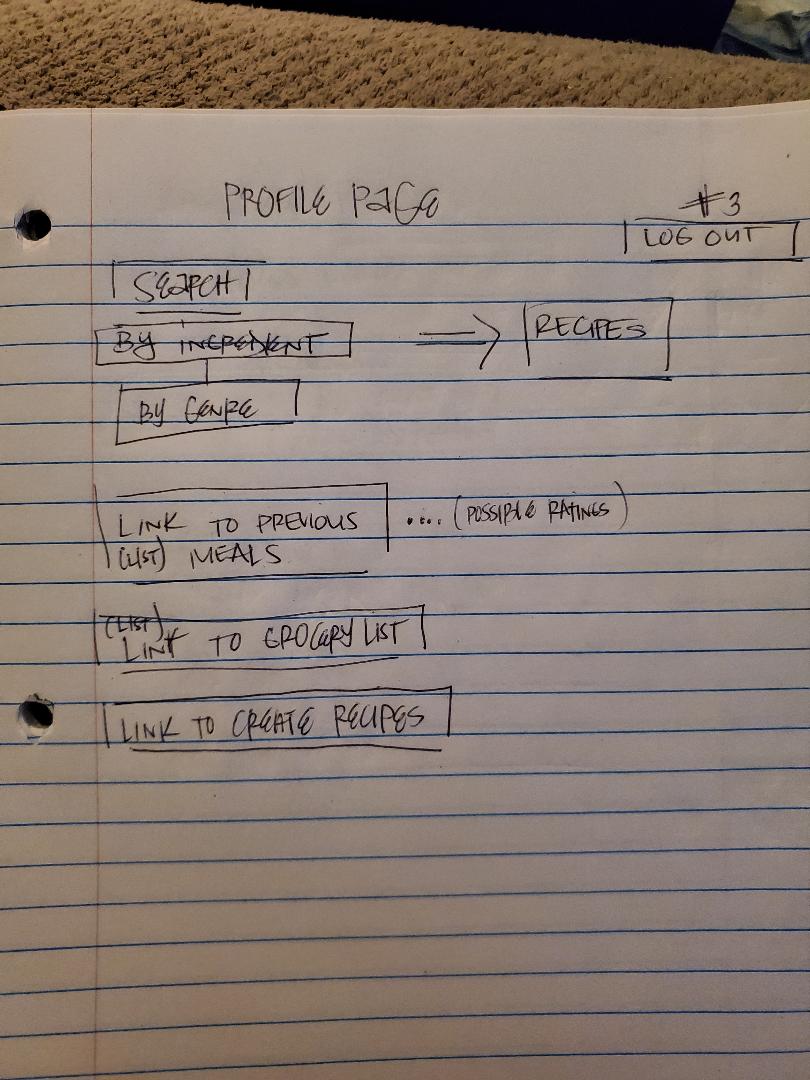 PROFILE PAGE
#3
LOG OUT
SEARCH
BY INGREDIENT
RECIPES
BY GENRE
LINK TO PREVIOUS .... (POSSIBLE RATINGS)
(LIST) MEALS
(LIST)
LINK TO GROCERY LIST
LINK TO CREATE RECIPES